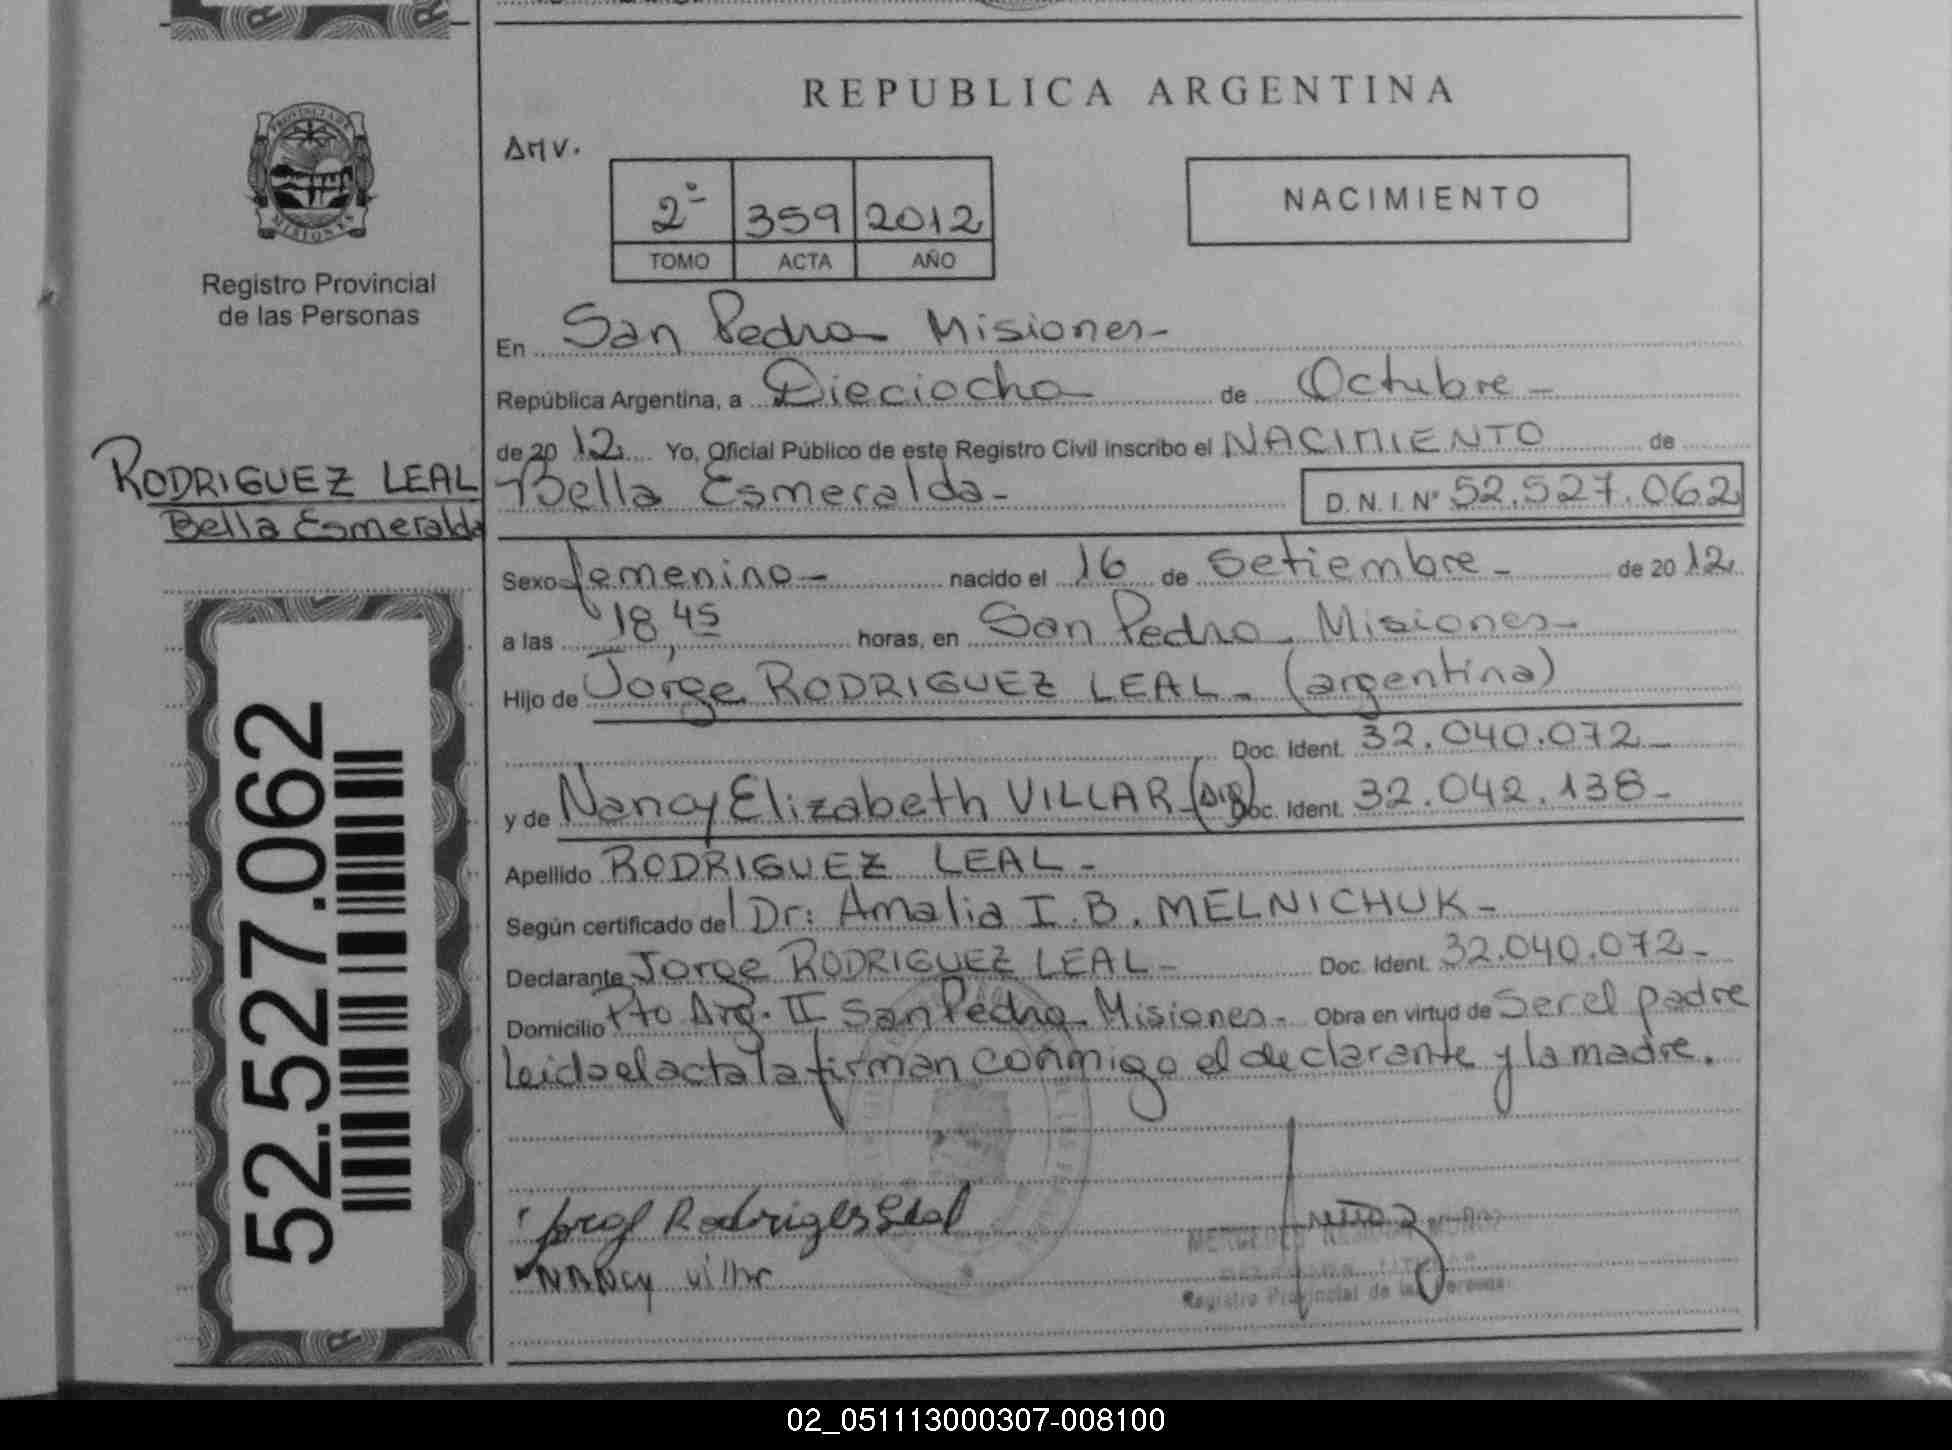 REPUBLICA ARGENTINA
PROVINCIA DE
MISIONES
Registro Provincial
de las Personas
2º 359 2012
TOMO ACTA AÑO
NACIMIENTO
En San Pedro Misiones-
República Argentina, a Dieciocho de Octubre-
de 20 12 Yo, Oficial Público de este Registro Civil inscribo el NACIMIENTO de
RODRIGUEZ LEAL
Bella Esmeralda
Bella Esmeralda- D.N.I. Nº 52.527.062
Sexo femenino- nacido el 16 de Setiembre- de 20 12
a las 18,45 horas, en San Pedro. Misiones-
Hijo de Jorge RODRIGUEZ LEAL- (argentina)
Doc. Ident. 32.040.072-
y de Nancy Elizabeth VILLAR- Doc. Ident. 32.042.138-
Apellido RODRIGUEZ LEAL-
Según certificado del Dr: Amalia I.B. MELNICHUK-
Declarante Jorge RODRIGUEZ LEAL- Doc. Ident. 32.040.072-
Domicilio Pto Arg. II San Pedro- Misiones- Obra en virtud de Ser el padre
leida el acta la firman conmigo el declarante y la madre.
52.527.062
Rodrigues Leal
NANCY villar
Registro Provincial de las Personas
02_051113000307-008100